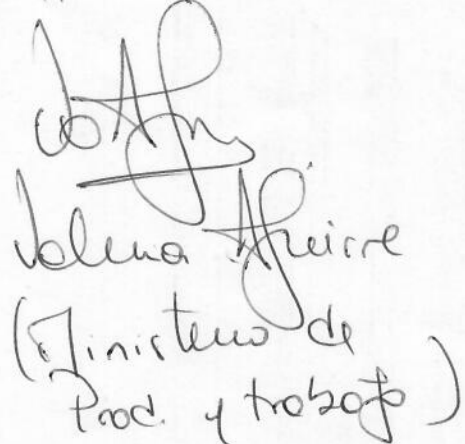 Valeria Aguirre
(Ministerio de
Prod. y trabajo)